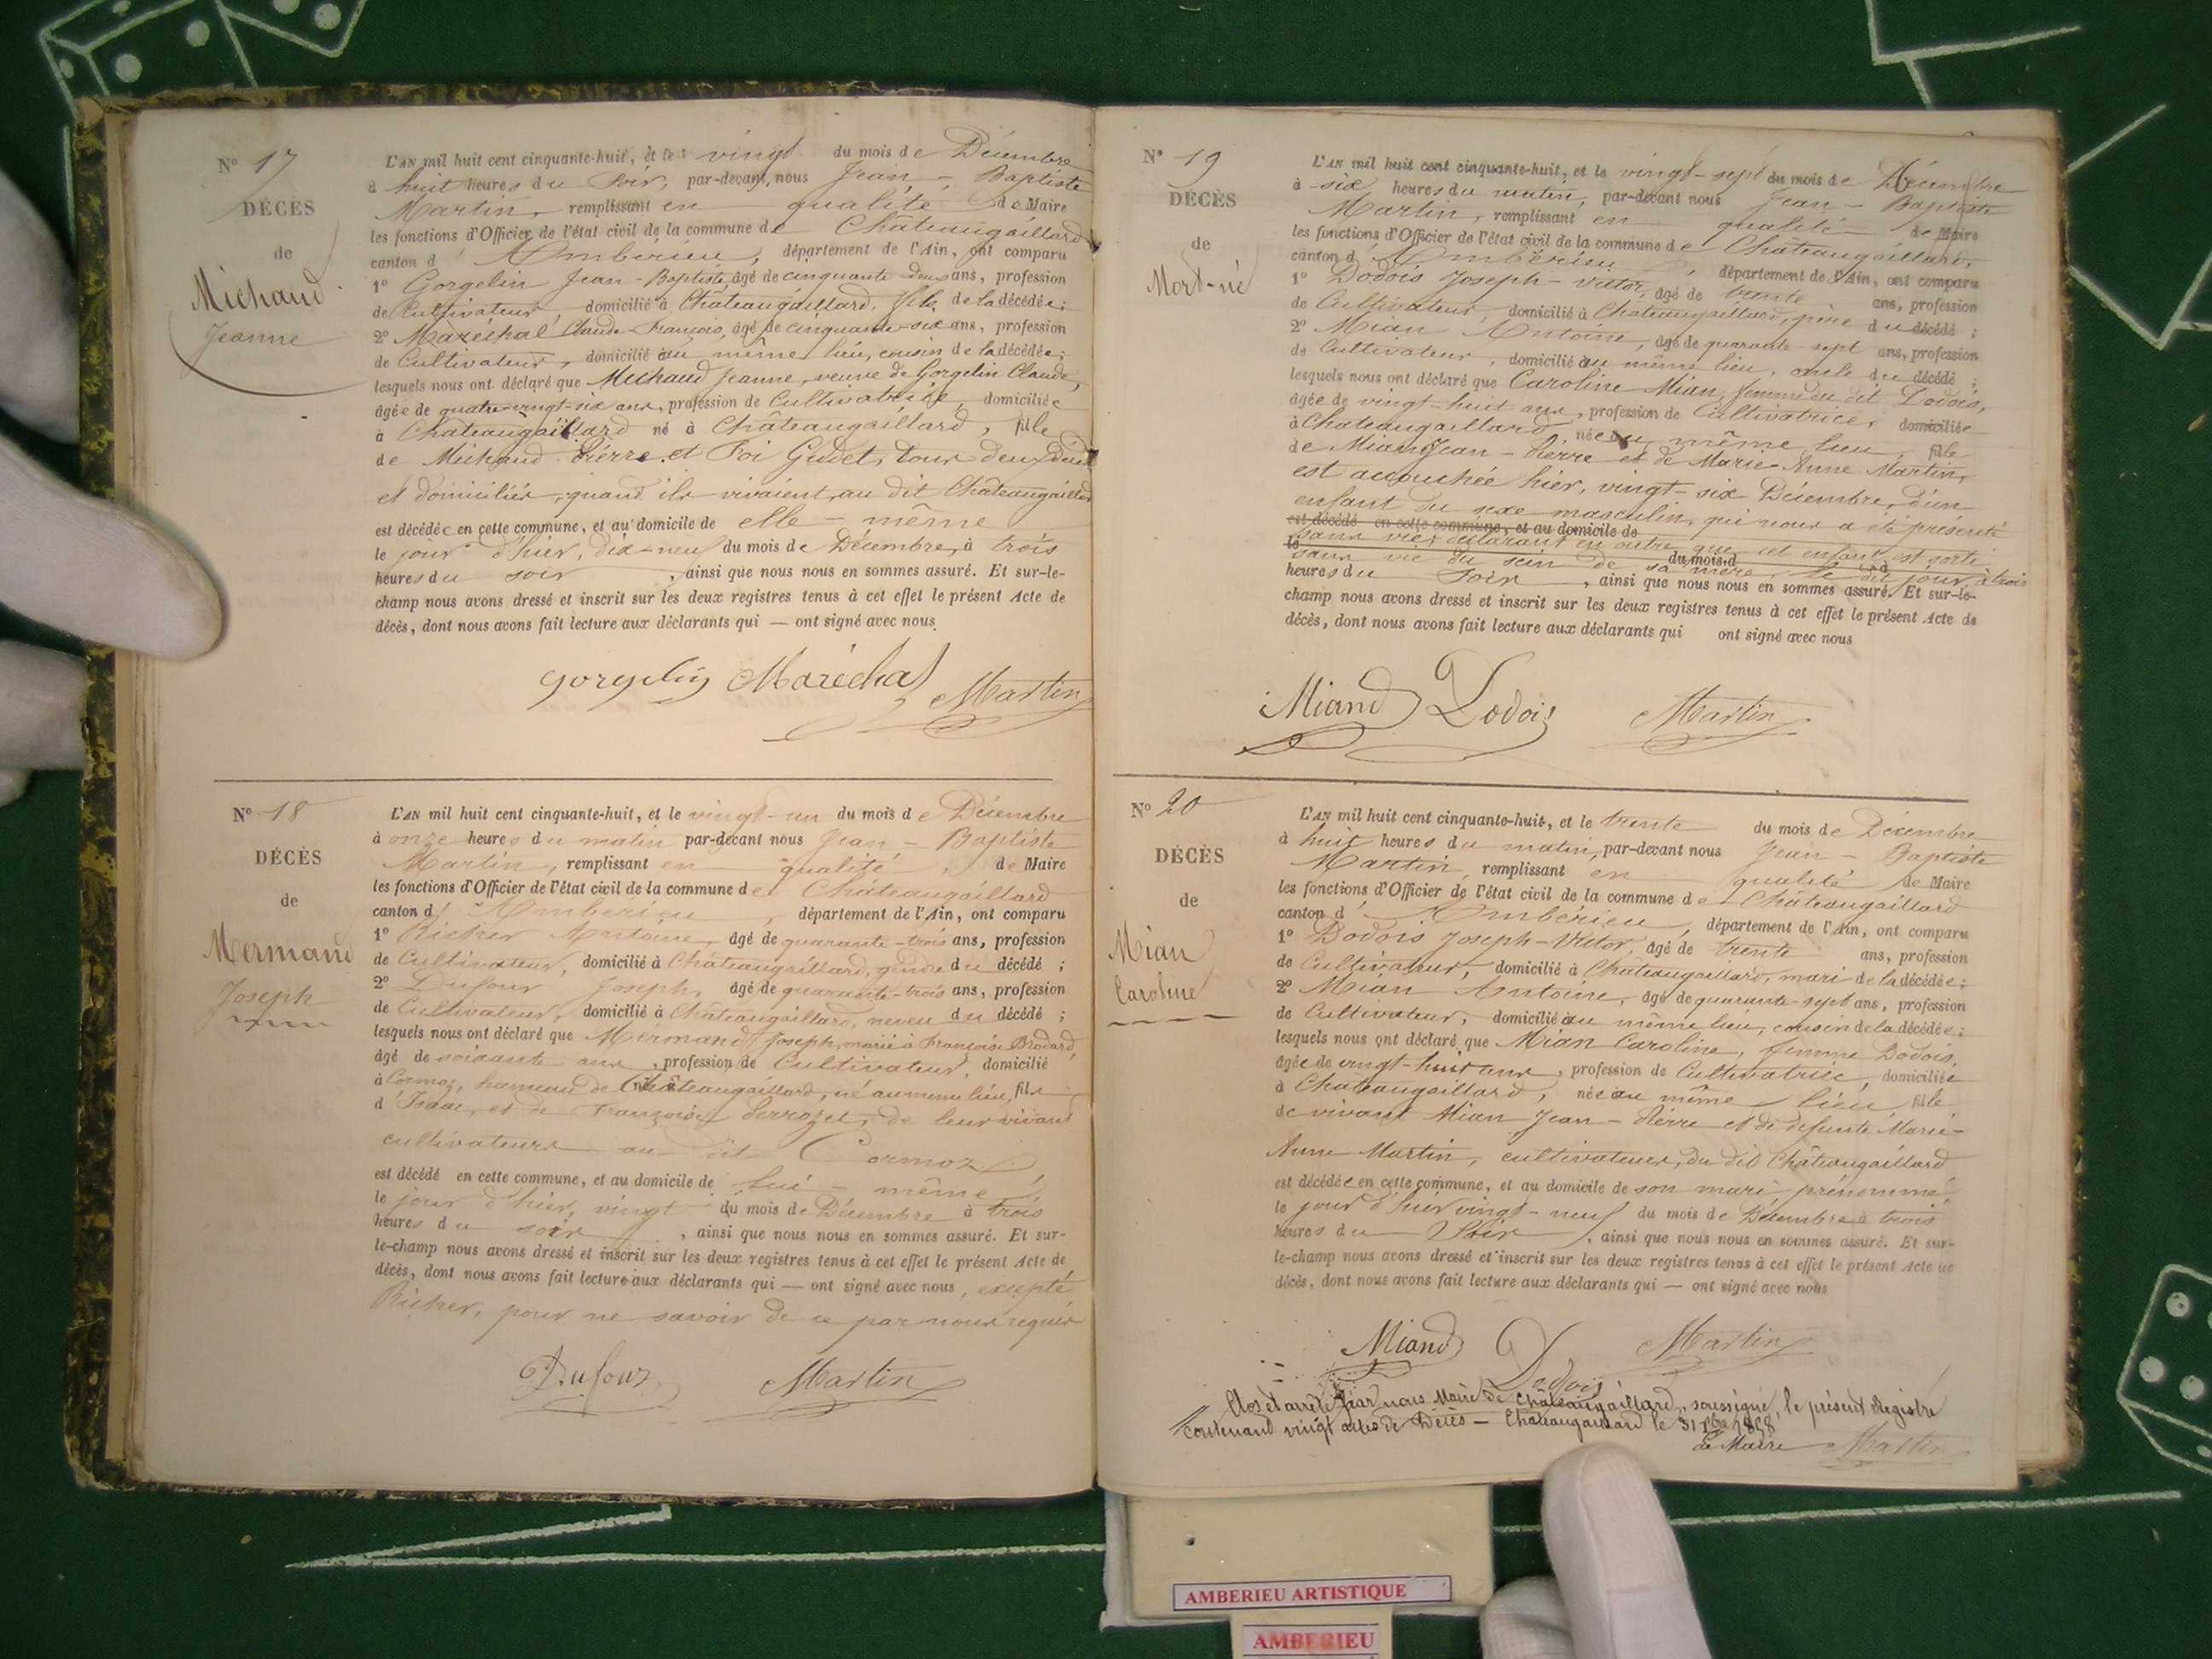 N° 17
DÉCÈS
de
Michaud
Jeanne
L'AN mil huit cent cinquante-huit, et le vingt du mois de Décembre
à huit heures du soir, par-devant nous Jean-Baptiste
Martin, remplissant en qualité de Maire
les fonctions d'Officier de l'état civil de la commune de Châteaugaillard
canton d'Ambérieu, département de l'Ain, ont comparu
1° Gorgelin Jean-Baptiste, âgé de cinquante deux ans, profession
de Cultivateur, domicilié à Châteaugaillard, fils de la décédée;
2° Maréchal Claude-François, âgé de cinquante-six ans, profession
de Cultivateur, domicilié au même lieu, cousin de la décédée;
lesquels nous ont déclaré que Michaud Jeanne, veuve de Gorgelin Claude,
âgée de quatre-vingt-six ans, profession de Cultivatrice, domiciliée
à Châteaugaillard né à Châteaugaillard, fille
de Michaud Pierre et Foi Gudet, tous deux
et domiciliés, quand ils vivaient, au dit Châteaugaillard
est décédée en cette commune, et au domicile de elle-même
le jour d'hier, dix-neuf du mois de Décembre, à trois
heures du soir, ainsi que nous nous en sommes assuré. Et sur-le-
champ nous avons dressé et inscrit sur les deux registres tenus à cet effet le présent Acte de
décès, dont nous avons fait lecture aux déclarants qui — ont signé avec nous.
Gorgelin Maréchal Martin
N° 18
DÉCÈS
de
Mermand
Joseph
L'AN mil huit cent cinquante-huit, et le vingt-un du mois de Décembre
à onze heures du matin par-devant nous Jean-Baptiste
Martin, remplissant en qualité, de Maire
les fonctions d'Officier de l'état civil de la commune de Châteaugaillard
canton d'Ambérieu, département de l'Ain, ont comparu
1° Richer Antoine, âgé de quarante-trois ans, profession
de Cultivateur, domicilié à Châteaugaillard, gendre du décédé;
2° Dufour Joseph, âgé de quarante-trois ans, profession
de Cultivateur, domicilié à Châteaugaillard, neveu du décédé;
lesquels nous ont déclaré que Mermand Joseph, marié à Françoise Brodard,
âgé de soixante ans, profession de Cultivateur, domicilié
à Cormoz, hameau de Châteaugaillard, né au même lieu, fils
d'Isaac, et de Françoise Perrozet, de leur vivant
cultivateurs au dit Cormoz,
est décédé en cette commune, et au domicile de lui-même
le jour d'hier, vingt du mois de Décembre à trois
heures du soir, ainsi que nous nous en sommes assuré. Et sur-
le-champ nous avons dressé et inscrit sur les deux registres tenus à cet effet le présent Acte de
décès, dont nous avons fait lecture aux déclarants qui — ont signé avec nous, excepté
Richer, pour ne savoir de ce par nous requis
Dufour Martin
N° 19
DÉCÈS
de
Mort-né
L'AN mil huit cent cinquante-huit, et le vingt-sept du mois de Décembre
à six heures du matin, par-devant nous Jean-Baptiste
Martin, remplissant en qualité de Maire
les fonctions d'Officier de l'état civil de la commune de Châteaugaillard,
canton d'Ambérieu, département de l'Ain, ont comparu
1° Dodois Joseph-Victor, âgé de trente ans, profession
de Cultivateur, domicilié à Châteaugaillard, père du décédé;
2° Mian Antoine, âgé de quarante-sept ans, profession
de Cultivateur, domicilié au même lieu, oncle du décédé;
lesquels nous ont déclaré que Caroline Mian, femme du dit Dodois,
âgée de vingt-huit ans, profession de Cultivatrice, domiciliée
à Châteaugaillard, née au même lieu, fille
de Mian Jean-Pierre et de Marie-Anne Martin,
est accouchée hier, vingt-six Décembre, d'un
enfant du sexe masculin, qui nous a été présenté
est décédé en cette commune, et au domicile de
sans vie; déclarant en outre que cet enfant est sorti
le du mois d à
sans vie du sein de sa mère le dit jour, à trois
heures du soir, ainsi que nous nous en sommes assuré. Et sur-le-
champ nous avons dressé et inscrit sur les deux registres tenus à cet effet le présent Acte de
décès, dont nous avons fait lecture aux déclarants qui ont signé avec nous
Miand Dodois Martin
N° 20
DÉCÈS
de
Mian
Caroline
L'AN mil huit cent cinquante-huit, et le trente du mois de Décembre
à huit heures du matin, par-devant nous Jean-Baptiste
Martin, remplissant en qualité de Maire
les fonctions d'Officier de l'état civil de la commune de Châteaugaillard
canton d'Ambérieu, département de l'Ain, ont comparu
1° Dodois Joseph-Victor, âgé de trente ans, profession
de Cultivateur, domicilié à Châteaugaillard, mari de la décédée;
2° Mian Antoine, âgé de quarante-sept ans, profession
de Cultivateur, domicilié au même lieu, cousin de la décédée;
lesquels nous ont déclaré que Mian Caroline, femme Dodois,
âgée de vingt-huit ans, profession de Cultivatrice, domiciliée
à Châteaugaillard, née au même lieu, fille
de vivant Mian Jean-Pierre et de défunte Marie-
Anne Martin, cultivateurs, du dit Châteaugaillard
est décédée en cette commune, et au domicile de son mari prénommé,
le jour d'hier vingt-neuf du mois de Décembre à trois
heures du Soir, ainsi que nous nous en sommes assuré. Et sur-
le-champ nous avons dressé et inscrit sur les deux registres tenus à cet effet le présent Acte de
décès, dont nous avons fait lecture aux déclarants qui — ont signé avec nous
Miand Dodois Martin
Clos et arrêté par nous Maire de Châteaugaillard, soussigné, le présent Registre
contenant vingt actes de Décès — Châteaugaillard le 31 Xbre 1858
Le Maire Martin
AMBERIEU ARTISTIQUE
AMBERIEU